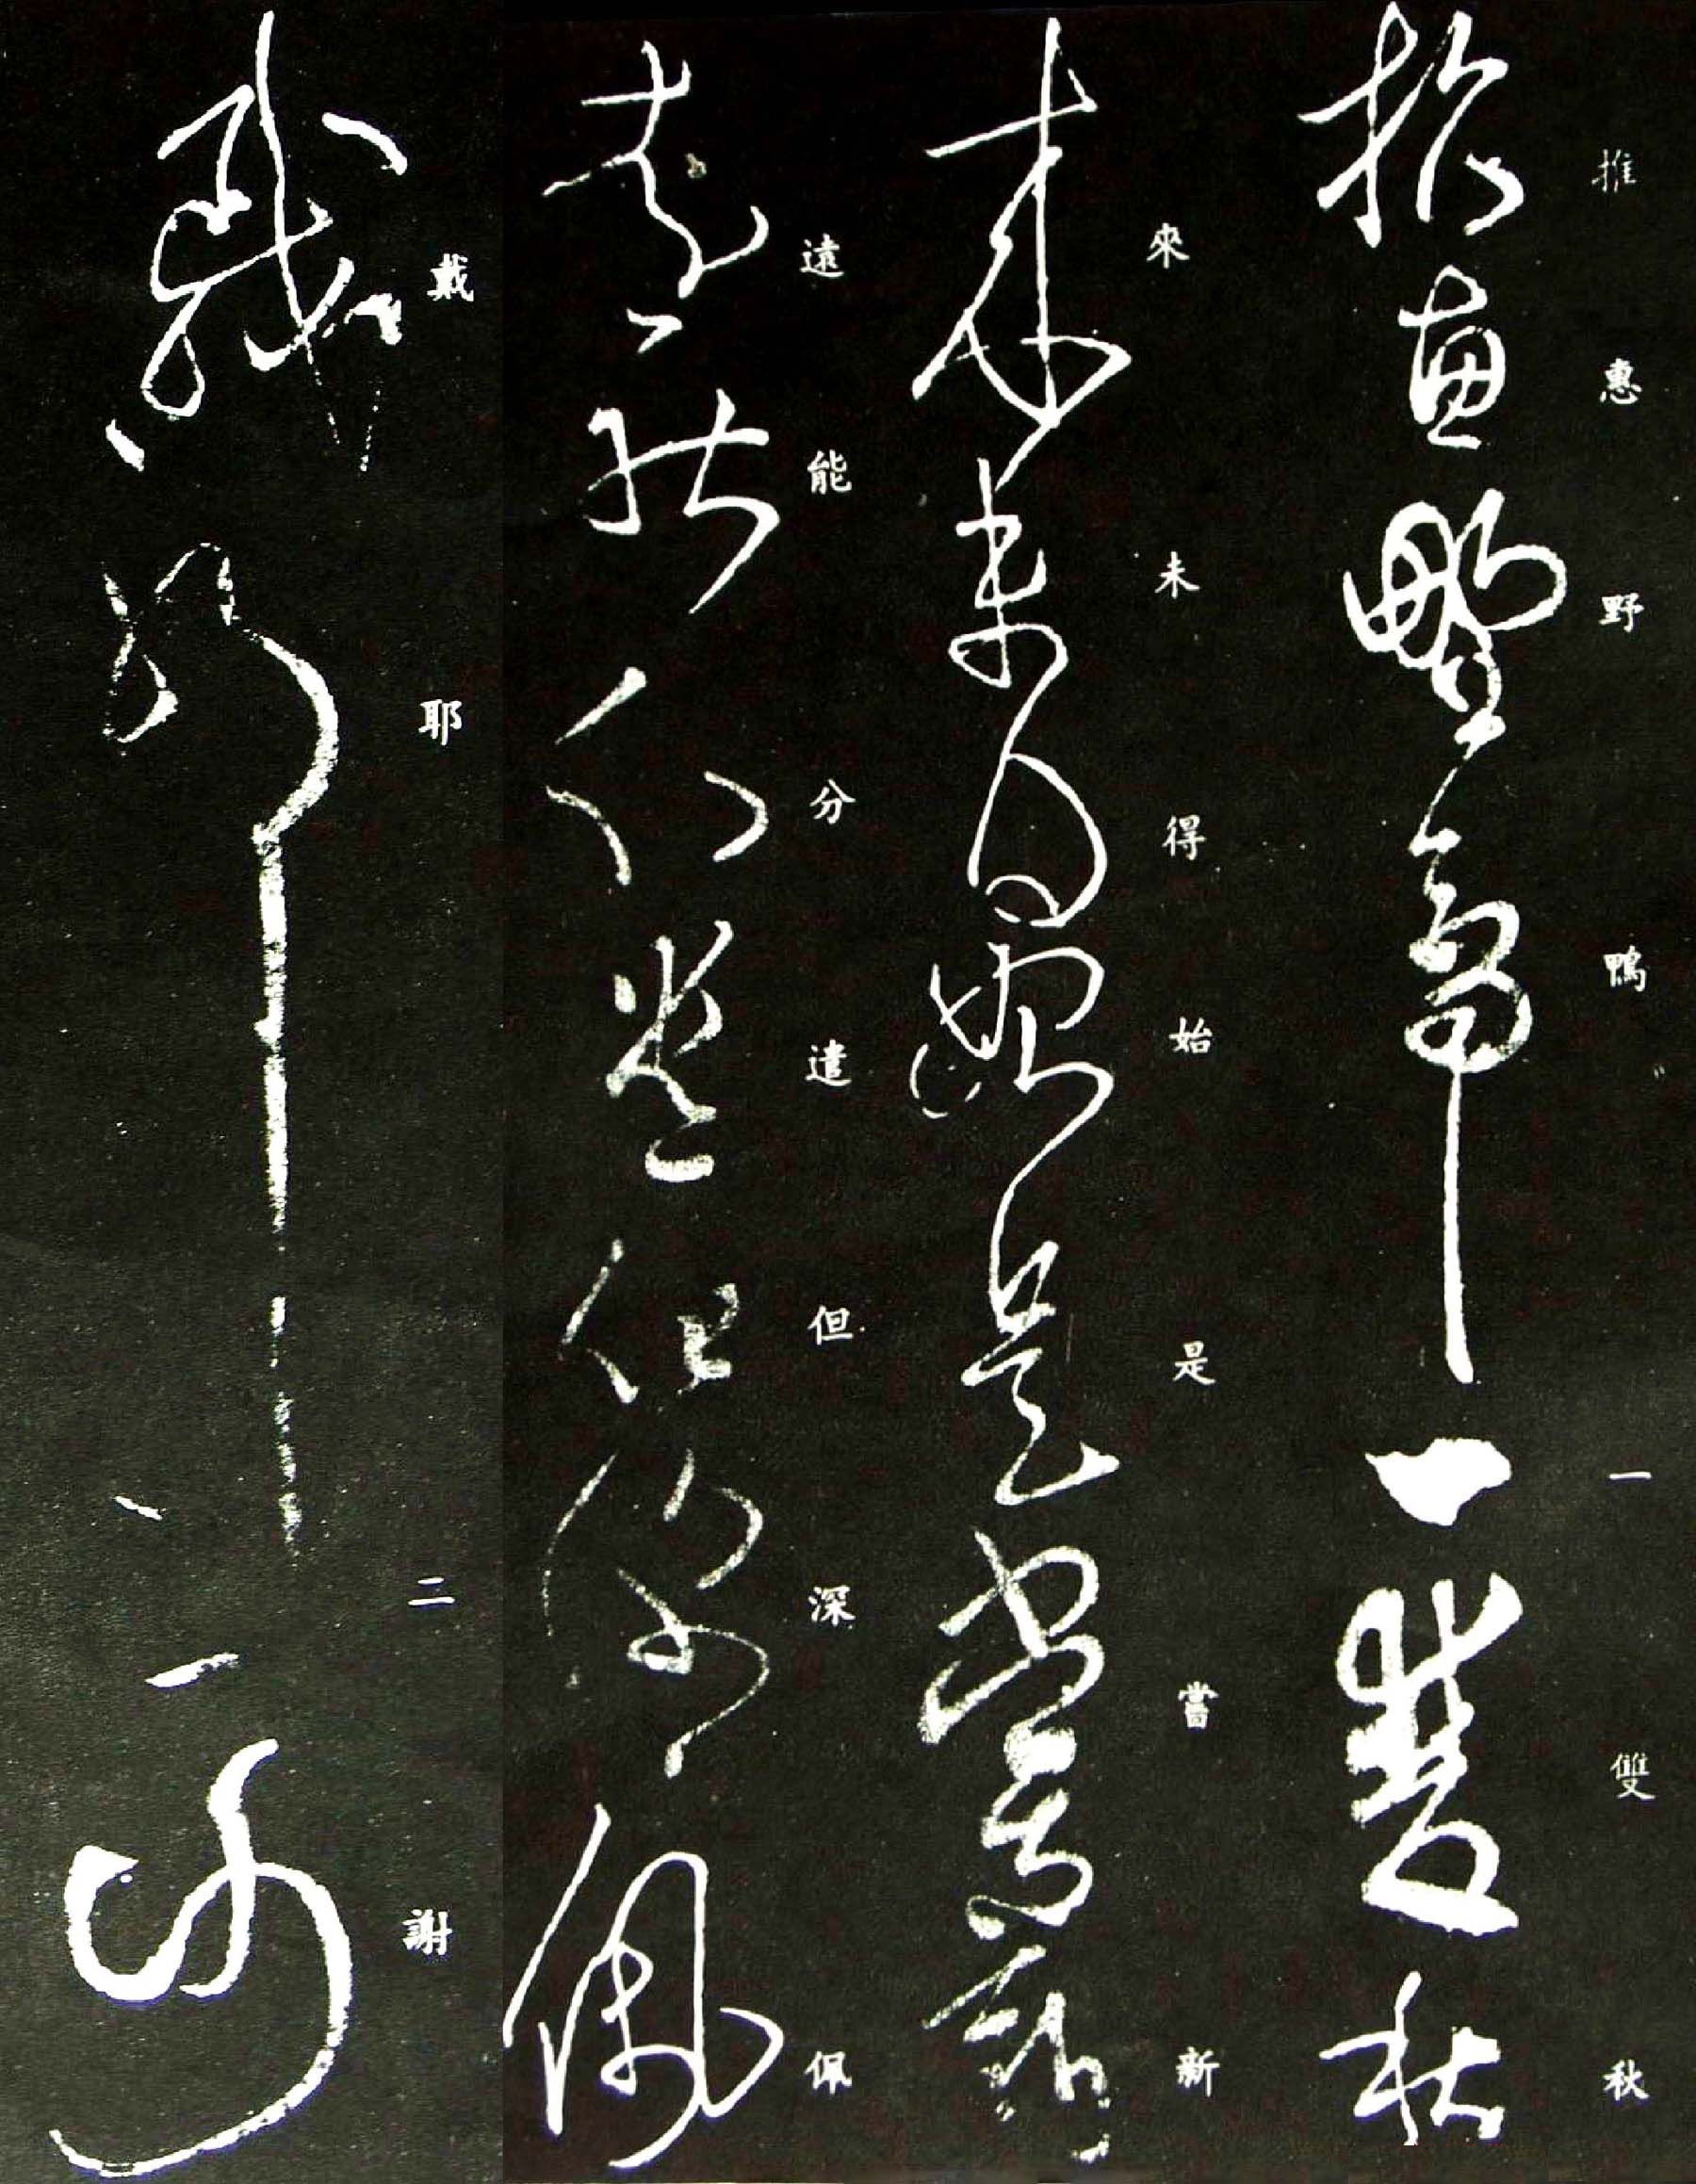 推惠野鴨一雙秋
來未得始是當新
遠能分遣但深佩
戴耶二謝